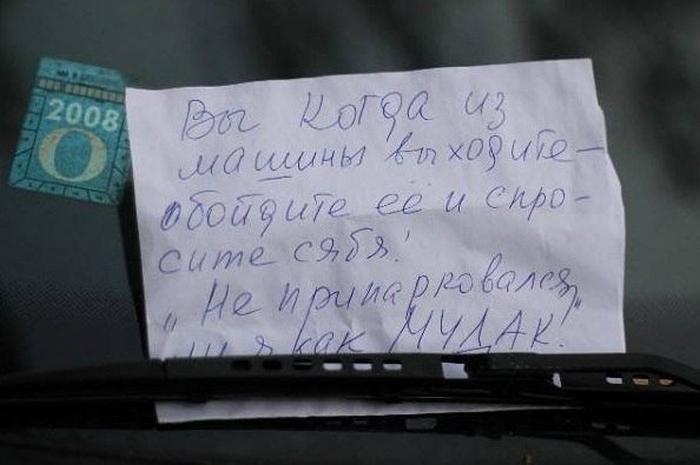 2008
Вы когда из
машины выходите –
обойдите её и спро-
сите сябя!
„Не припарковался"
ли я как МУДАК!